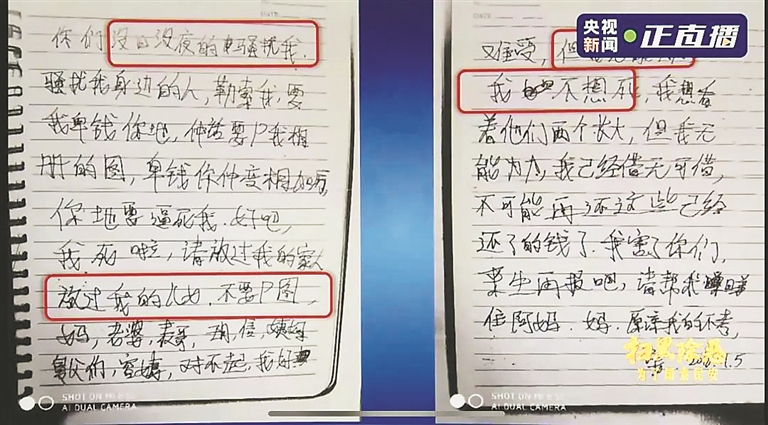 央视新闻
正直播
你们没日没夜的骚扰我.
骚扰我身边的人,勒索我,要
我单钱你地,仲话要P我相
册的图,单钱你仲变相加
你地要逼死我.好吧,
我死啦,请放过我的家人
放过我的儿女,不要P图,
妈,老婆,表哥,
对不起,我好
难受,但
我不想死,我想看
着他们两个长大,但我无
能为力,我已经借无可借,
不可能再还这些已经
还了的钱了.我害了你们,
来生再报吧,请帮我
住阿妈.妈.原谅我的不孝,
扫黑除恶
SHOT ON MI 8 SE
AI DUAL CAMERA
SHOT ON MI 8 SE
AI DUAL CAMERA